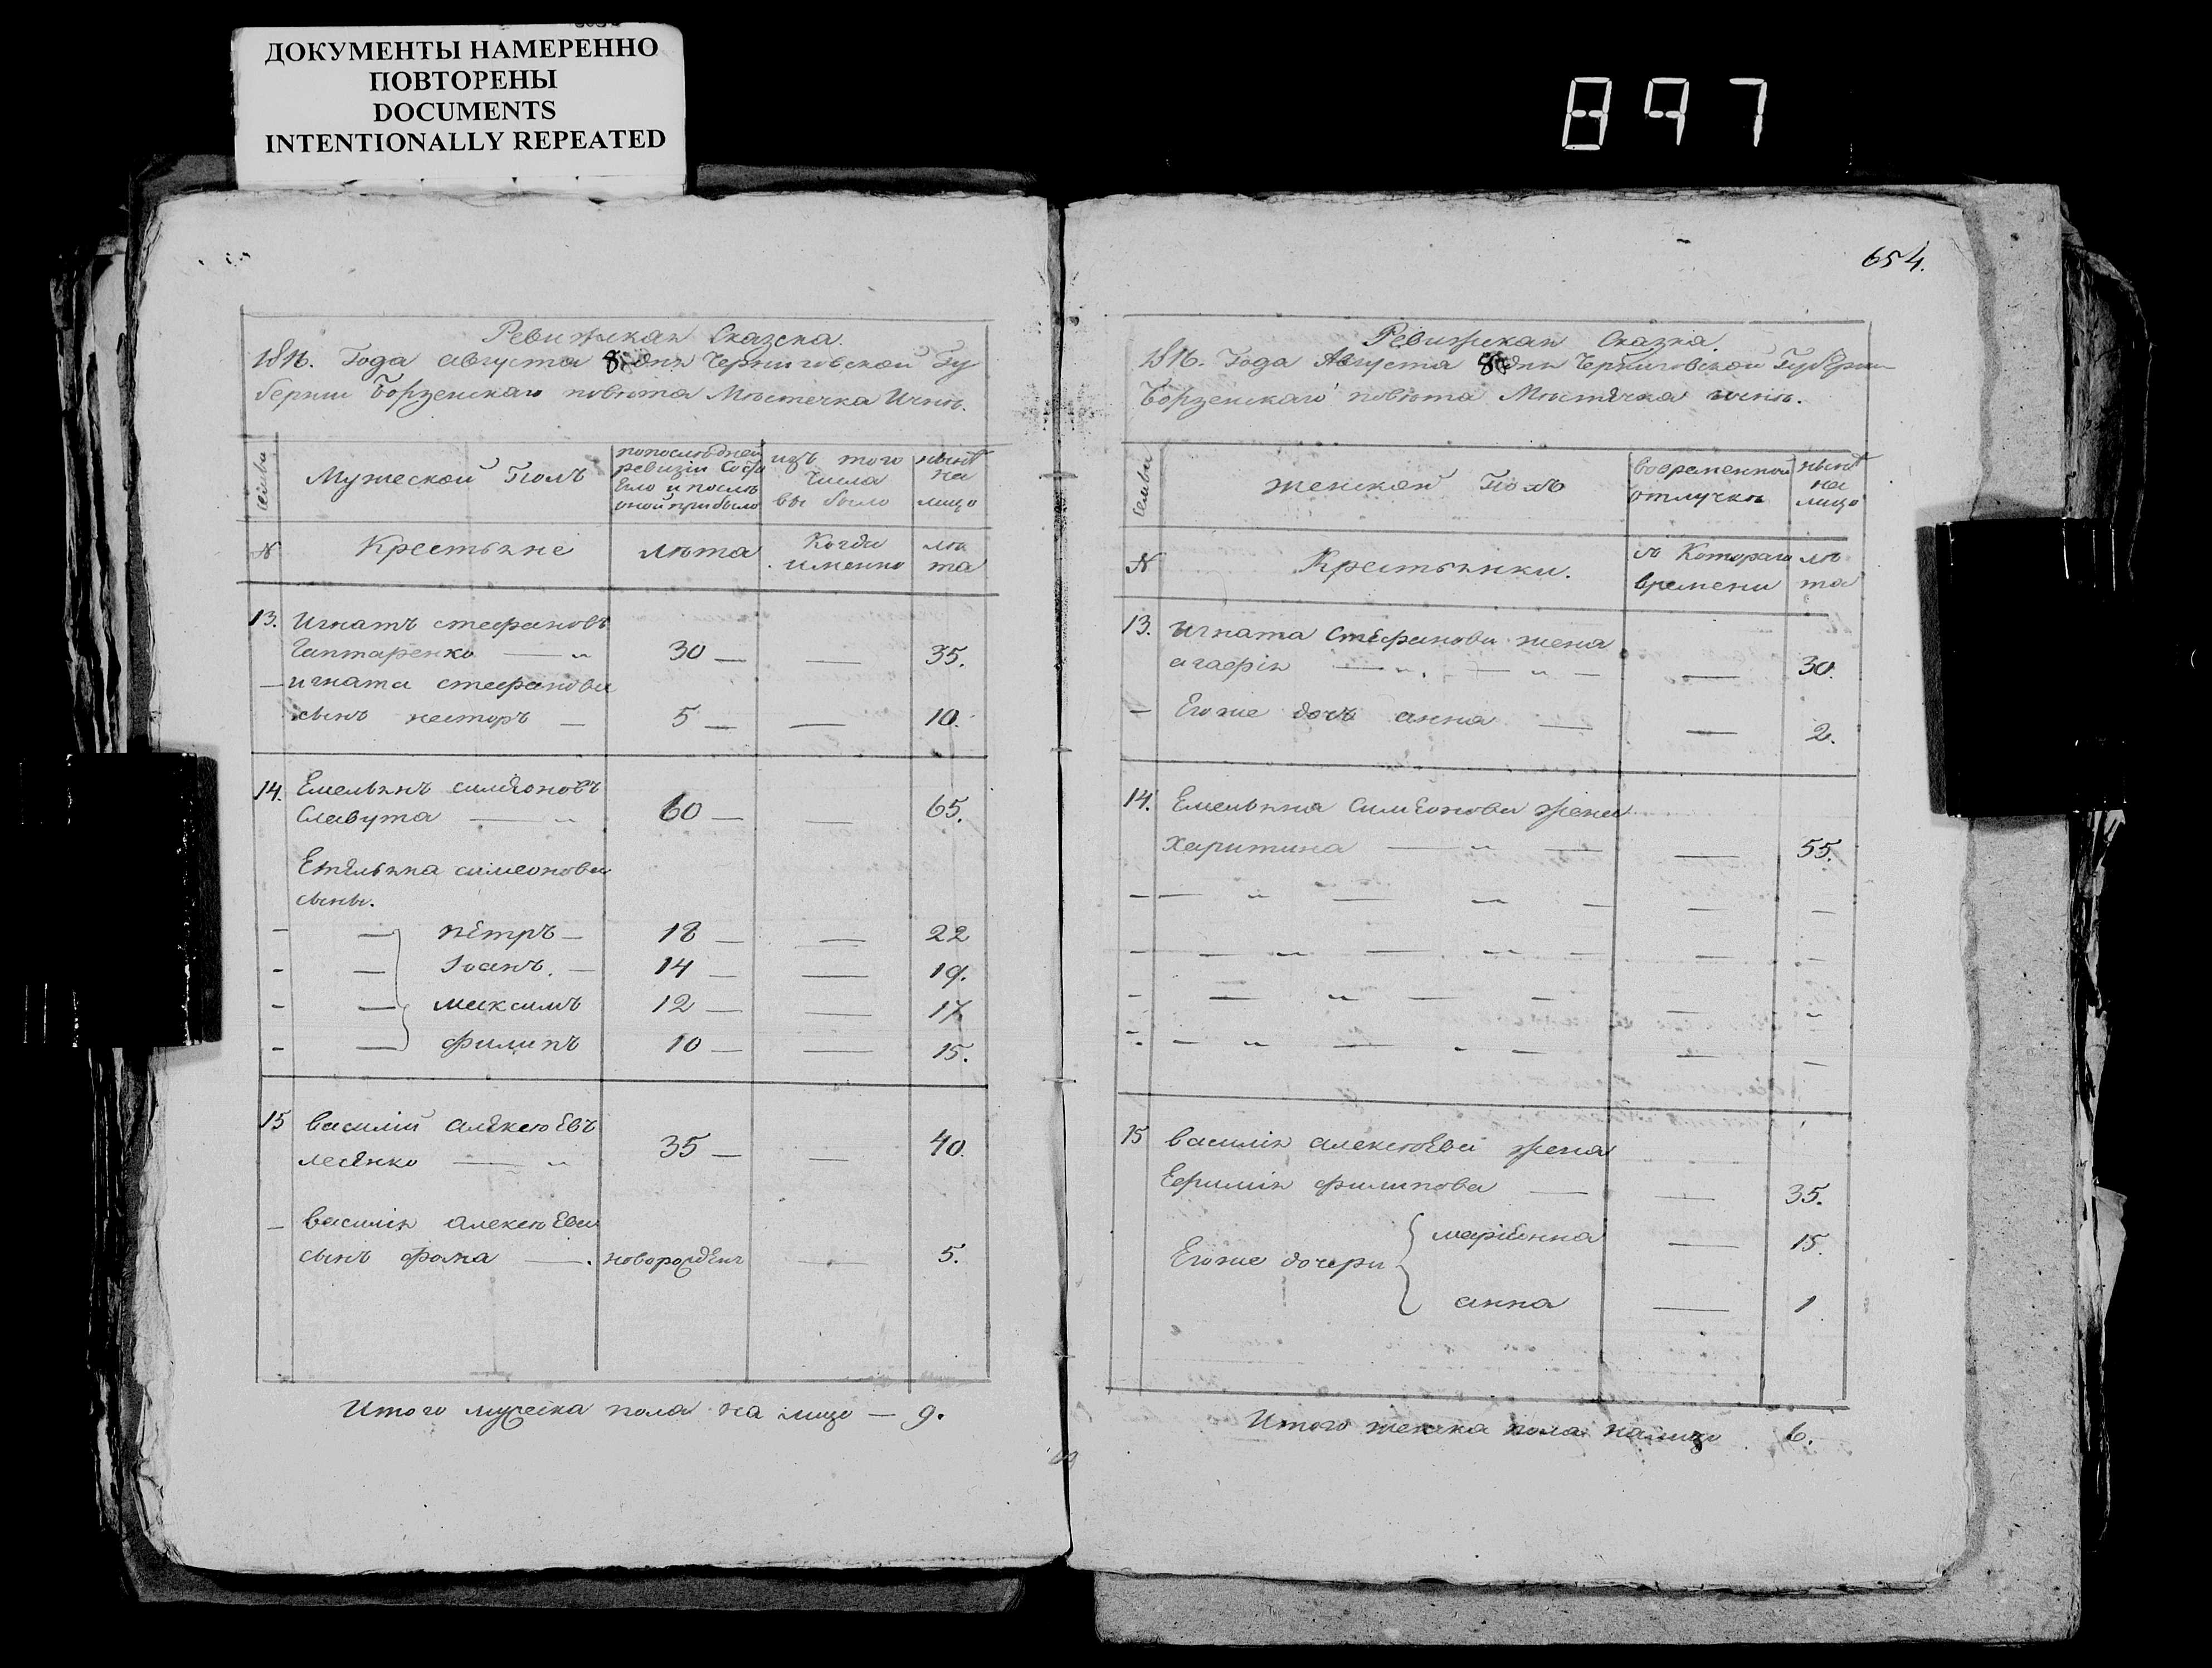 ДОКУМЕНТЫ НАМЕРЕННО
ПОВТОРЕНЫ
DOCUMENTS
INTENTIONALLY REPEATED
897
Ревижская Сказска.
1816. Года августа 8 дня Черниговской Гу
бернии Борзенскаго повѣта Мѣстечка Ични.
семьи
Мужеской Полъ
попослѣдней
ревизіи Состо
яло и послѣ
оной прибыло
изъ того
числа
вы было
нынѣ
на
лицо
№
Крестьяне
лѣта
Когда
именно
лѣ
та
13. Игнатъ стефановъ
Гаптаренко — „ 30 — — 35.
— игната стефанова
сынъ несторъ — 5 — — 10.
14. Емельянъ симеоновъ
Славута — „ 60 — — 65.
Емельяна симеонова
сыны.
- — петръ — 18 — — 22
- — Іоанъ. — 14 — — 19.
- — максимъ 12 — — 17
- — филипъ 10 — — 15.
15 василій алексѣевъ
лесенко — „ 35 — — 40.
— василія алексѣева
сынъ фома —. новорожденъ — 5.
Итого мужеска пола на лицо — 9.
654.
Ревижская Сказка.
1816. Года Августа 8 дня Черниговской Губерни
Борзенскаго повѣта Мѣстечка ични.
семьи
женской Полъ
вовременной
отлучкѣ
нынѣ
на
лицо
№
Крестьянки.
съ Котораго
времени
лѣ
та
13. игната Стефанова жена
агафія — „ — „ — — 30.
— Егоже дочь анна — — 2.
14. Емельяна Симеонова жена
харитина — „ — — 55.
15 василія алексѣева жена
Ефимія филипова — — 35.
Егоже дочери { маріанна — 15.
анна — 1
Итого женска пола налицо 6.